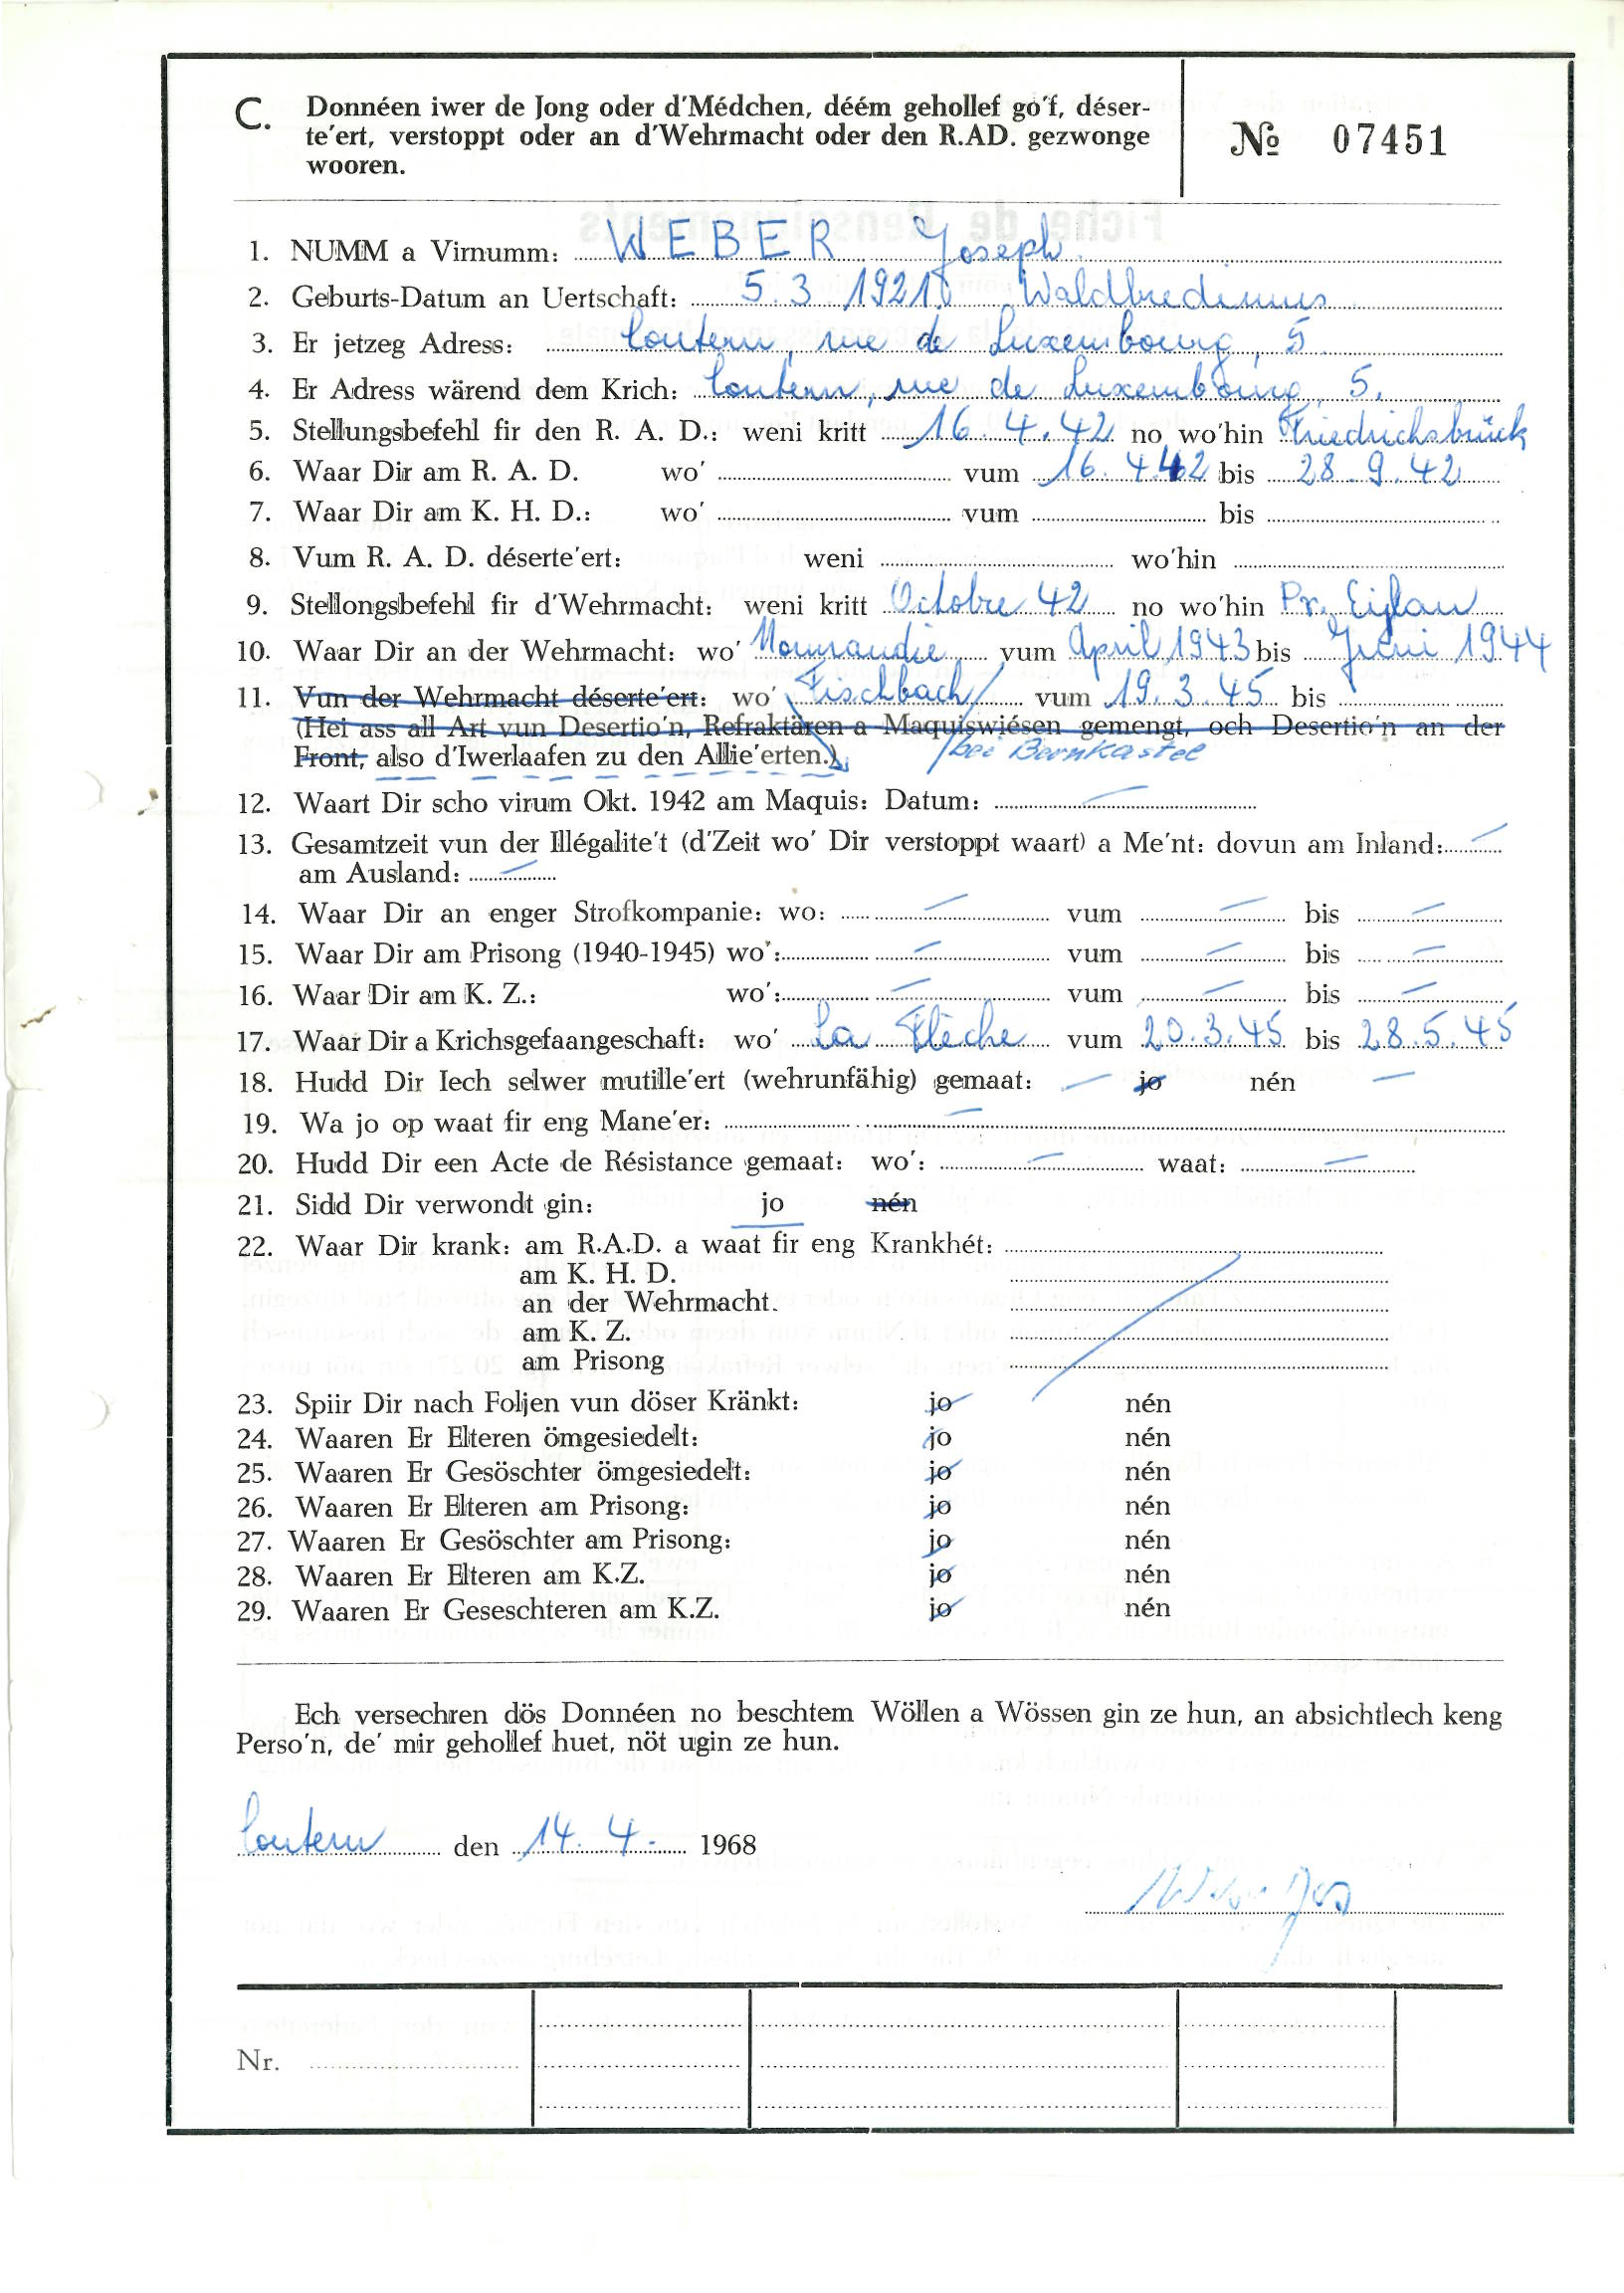 C. Donnéen iwer de Jong oder d'Médchen, déém gehollef go'f, déser-
te'ert, verstoppt oder an d'Wehrmacht oder den R.AD. gezwonge
wooren.
№ 07451
1. NUMM a Virnumm: WEBER Joseph
2. Geburts-Datum an Uertschaft: 5.3.1921 Waldbredimus
3. Er jetzeg Adress: Contern, rue de Luxembourg, 5
4. Er Adress wärend dem Krich: Contern, rue de Luxembourg, 5.
5. Stellungsbefehl fir den R. A. D.: weni kritt 16.4.42 no wo'hin Friedrichsbrück
6. Waar Dir am R. A. D. wo' vum 16.4.42 bis 28.9.42
7. Waar Dir am K. H. D.: wo' vum bis
8. Vum R. A. D. déserte'ert: weni wo'hin
9. Stellongsbefehl fir d'Wehrmacht: weni kritt Octobre 42 no wo'hin Pr. Eylau
10. Waar Dir an der Wehrmacht: wo' Normandie vum April 1943 bis Juni 1944
11. Vun der Wehrmacht déserte'ert: wo' Fischbach vum 19.3.45 bis
(Hei ass all Art vun Desertio'n, Refraktären a Maquiswiésen gemengt, och Desertio'n an der
Front, also d'Iwerlaafen zu den Allie'erten.) bei Bernkastel
12. Waart Dir scho virum Okt. 1942 am Maquis: Datum: —
13. Gesamtzeit vun der Illégalite't (d'Zeit wo' Dir verstoppt waart) a Me'nt: dovun am Inland: —
am Ausland: —
14. Waar Dir an enger Strofkompanie: wo: — vum — bis —
15. Waar Dir am Prisong (1940-1945) wo': — vum — bis —
16. Waar Dir am K. Z.: wo': — vum — bis —
17. Waar Dir a Krichsgefaangeschaft: wo' La Flèche vum 20.3.45 bis 28.5.45
18. Hudd Dir Iech selwer mutille'ert (wehrunfähig) gemaat: — jo nén —
19. Wa jo op waat fir eng Mane'er: —
20. Hudd Dir een Acte de Résistance gemaat: wo': — waat: —
21. Sidd Dir verwondt gin: jo nén
22. Waar Dir krank: am R.A.D. a waat fir eng Krankhét:
am K. H. D.
an der Wehrmacht.
am K. Z.
am Prisong
23. Spiir Dir nach Foljen vun döser Kränkt: jo nén
24. Waaren Er Elteren ömgesiedelt: jo nén
25. Waaren Er Gesöschter ömgesiedelt: jo nén
26. Waaren Er Elteren am Prisong: jo nén
27. Waaren Er Gesöschter am Prisong: jo nén
28. Waaren Er Elteren am K.Z. jo nén
29. Waaren Er Geseschteren am K.Z. jo nén
Ech versechren dös Donnéen no beschtem Wöllen a Wössen gin ze hun, an absichtlech keng
Perso'n, de' mir gehollef huet, nöt ugin ze hun.
Contern den 14.4. 1968
Weber Jos
Nr.